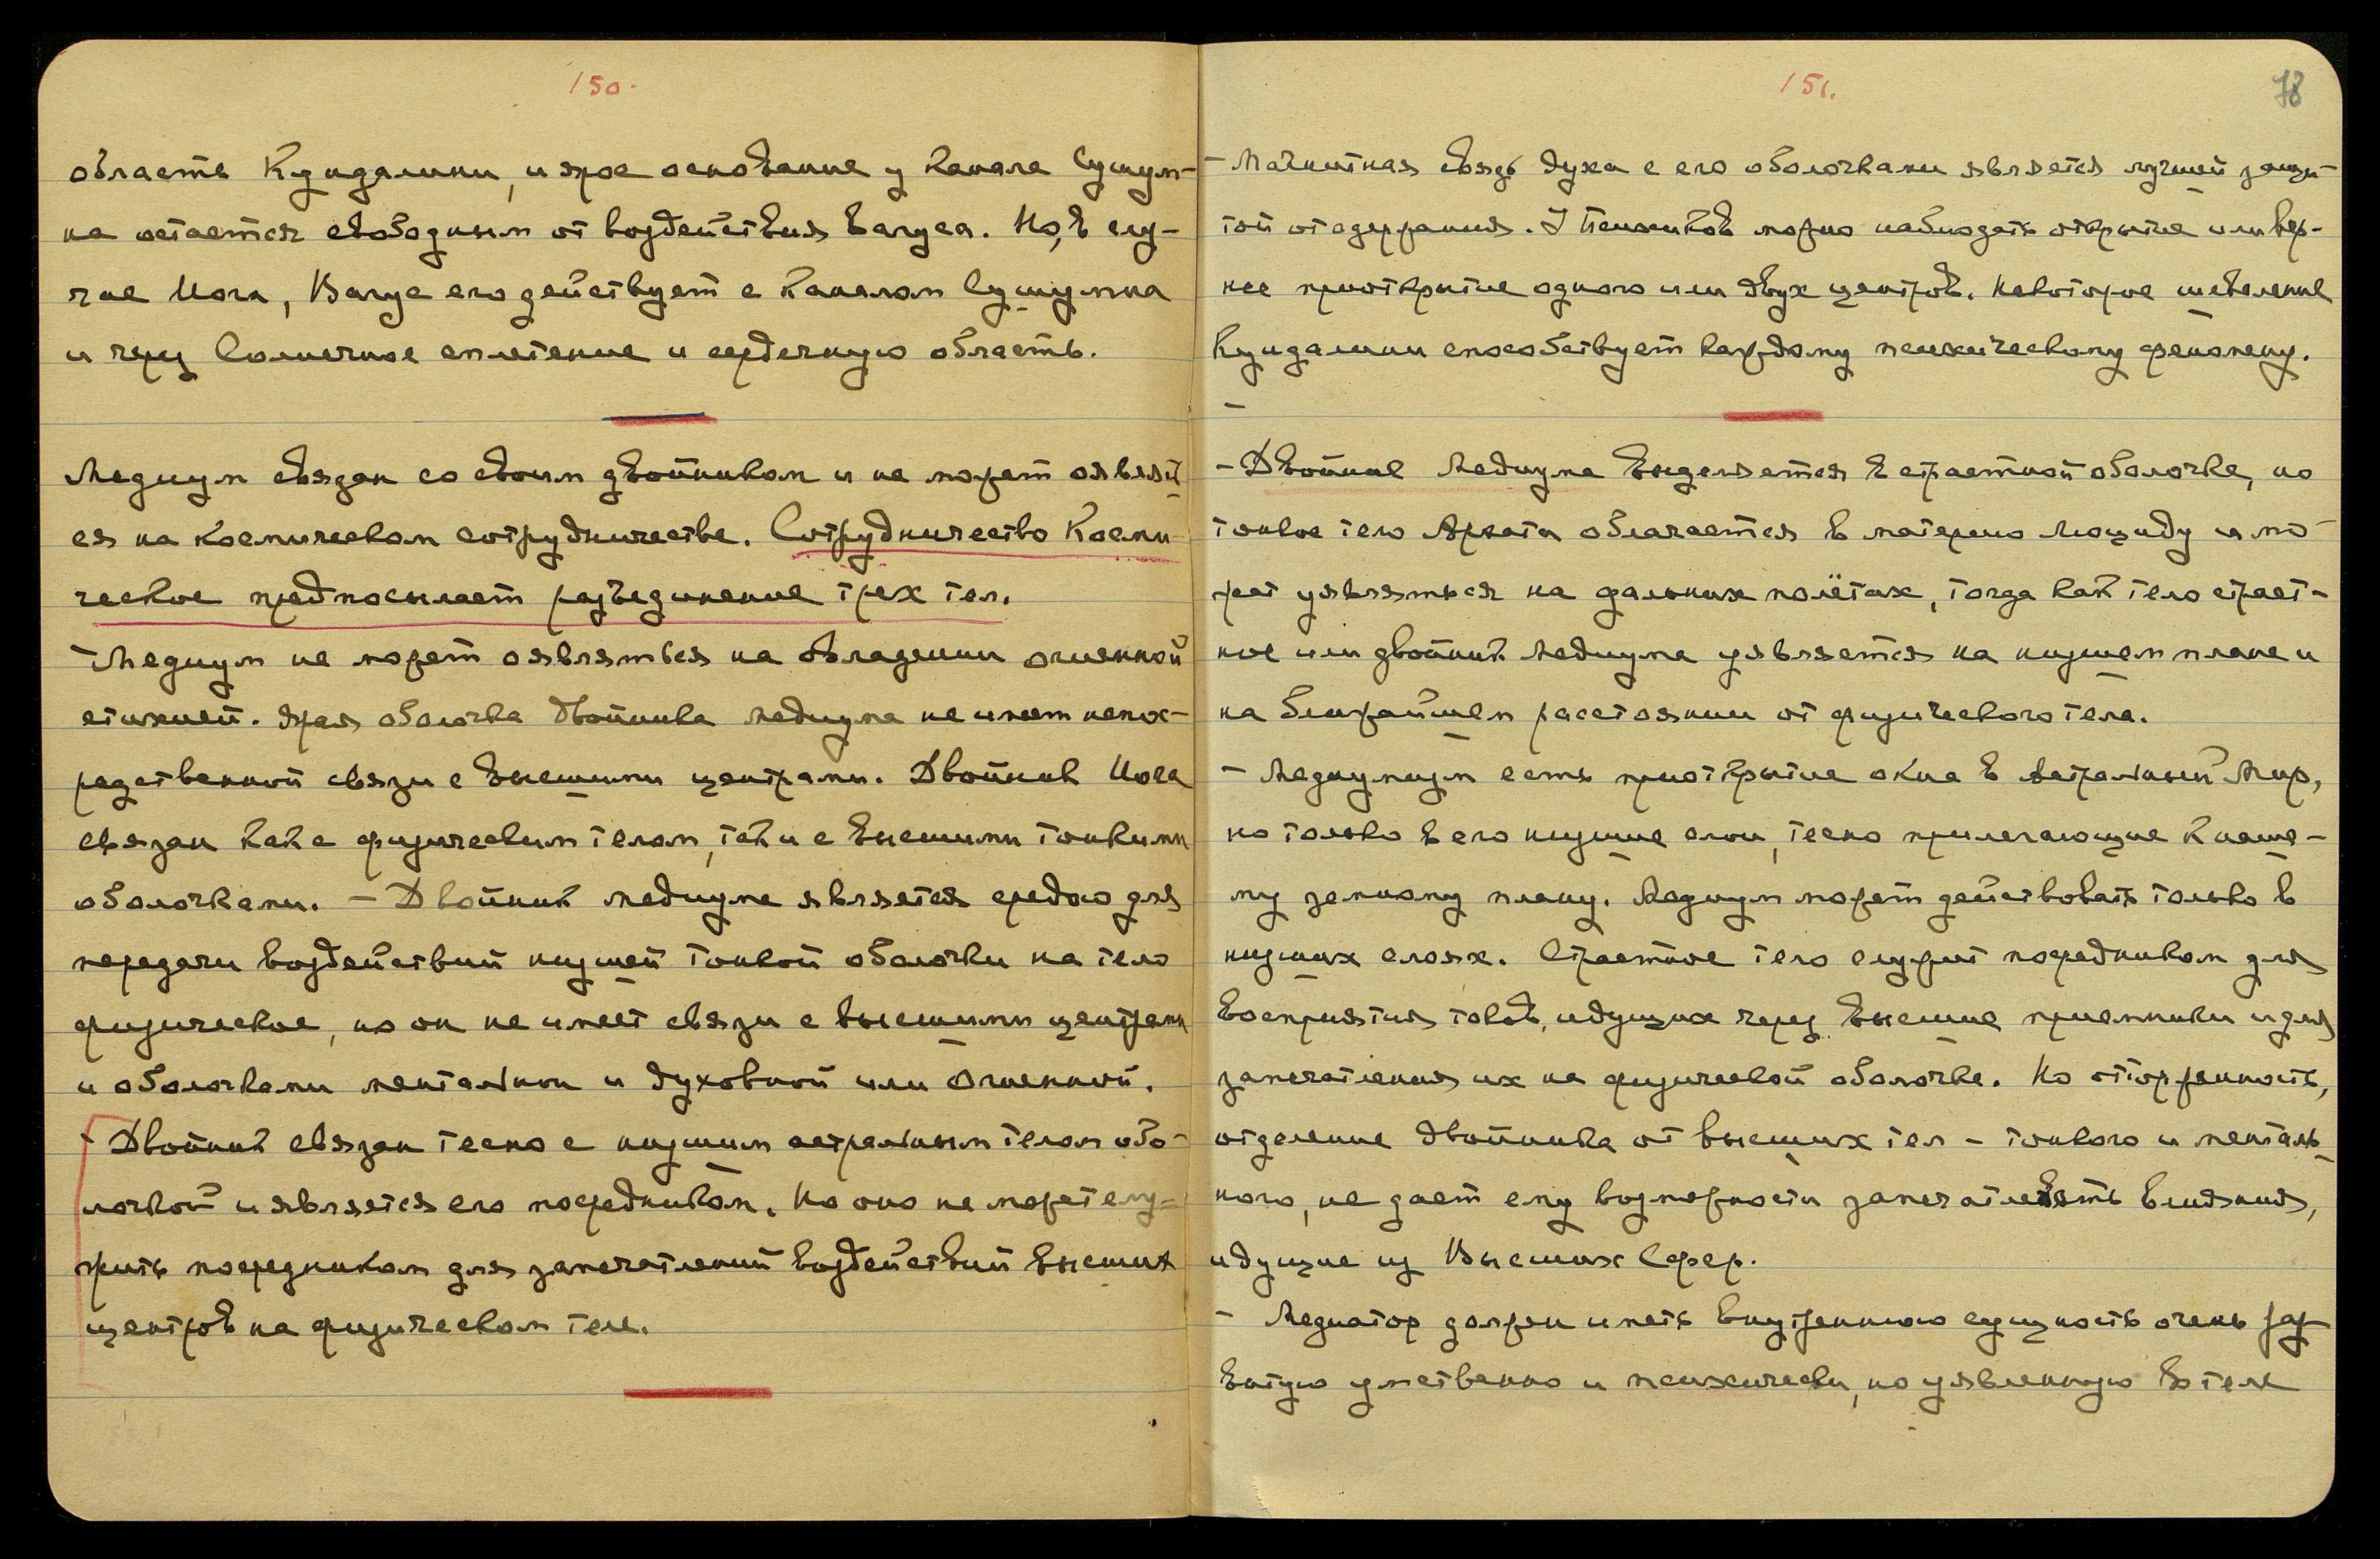 150.
область Кундалини, и ярое основание у канала Сушум-
на остается свободным от воздействия Вагуса. Но, в слу-
чае Йога, Вагус его действует с каналом Сушумна
и через Солнечное сплетение и сердечную область.
Медиум связан со своим двойником и не может оявлят-
ся на космическом сотрудничестве. Сотрудничество Косми-
ческое предпосылает разъединение трех тел.
- Медиум не может оявляться на овладении огненной
стихией. Ярая оболочка двойника медиума не имеет непос-
редственной связи с высшими центрами. Двойник Йога
связан как с физическим телом, так и с высшими тонкими
оболочками. - Двойник медиума является средою для
передачи воздействий низшей тонкой оболочки на тело
физическое, но он не имеет связи с высшими центрами
и оболочками ментальной и духовной или Огненной.
- Двойник связан тесно с низшим астральным телом обо-
лочкой и является его посредником. Но оно не может слу-
жить посредником для запечатлений воздействий высших
центров на физическом теле.
151.
78
- Магнитная связь духа с его оболочками является лучшей защи-
той от одержания. У Психиков можно наблюдать открытие или вер-
нее приоткрытие одного или двух центров. Некоторое шевеление
Кундалини способствует каждому психическому феномену.
- Двойник Медиума выделяется в страстной оболочке, но
тонкое тело Архата облачается в материю Люциду и мо-
жет уявляться на дальних полётах, тогда как тело страст-
ное или двойник Медиума уявляется на низшем плане и
на ближайшем расстоянии от физического тела.
- Медиумизм есть приоткрытие окна в Астральный Мир,
но только в его низшие слои, тесно прилегающие к наше-
му земному плану. Медиум может действовать только в
низших слоях. Страстное тело служит посредником для
восприятия токов, идущих через высшие приемники и для
запечатления их на физической оболочке. Но отторженность,
отделение двойника от высших тел - тонкого и менталь-
ного, не дает ему возможности запечатлевать влияния,
идущие из Высших Сфер.
- Медиатор должен иметь внутреннюю сущность очень раз-
витую умственно и психически, но уявленную в теле